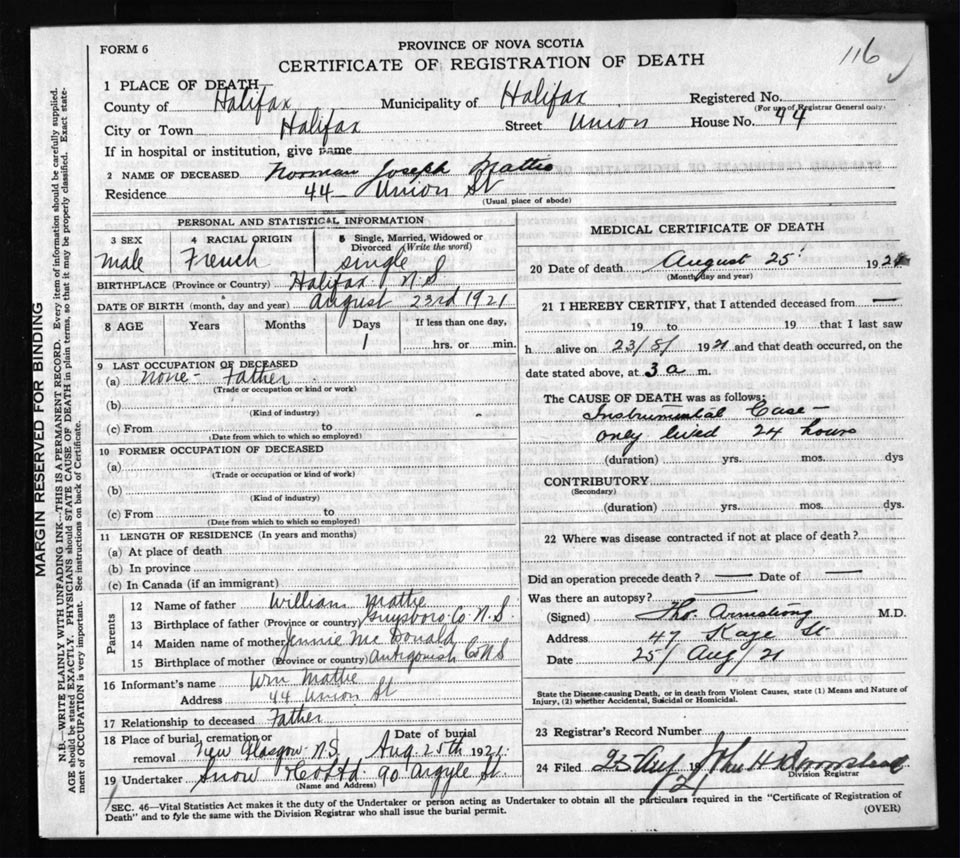 116
FORM 6
PROVINCE OF NOVA SCOTIA
CERTIFICATE OF REGISTRATION OF DEATH
1 PLACE OF DEATH
County of Halifax Municipality of Halifax Registered No.
(For use of Registrar General only.
City or Town Halifax Street Union House No. 44
If in hospital or institution, give name
2 NAME OF DECEASED Norman Joseph Mattie
Residence 44 Union St
(Usual place of abode)
PERSONAL AND STATISTICAL INFORMATION
3 SEX 4 RACIAL ORIGIN 5 Single, Married, Widowed or Divorced (Write the word)
male French single
BIRTHPLACE (Province or Country) Halifax N.S
DATE OF BIRTH (month, day and year) August 23rd 1921
8 AGE Years Months Days If less than one day,
1 hrs. or min.
9 LAST OCCUPATION OF DECEASED
(a) none - Father
(Trade or occupation or kind of work)
(b)
(Kind of industry)
(c) From to
(Date from which to which so employed)
10 FORMER OCCUPATION OF DECEASED
(a)
(Trade or occupation or kind of work)
(b)
(Kind of industry)
(c) From to
(Date from which to which so employed)
11 LENGTH OF RESIDENCE (In years and months)
(a) At place of death
(b) In province
(c) In Canada (if an immigrant)
Parents
12 Name of father William Mattie
13 Birthplace of father (Province or country) Guysboro Co N.S
14 Maiden name of mother Jennie McDonald
15 Birthplace of mother (Province or country) Antigonish Co N S
16 Informant's name Wm Mattie
Address 44 Union St
17 Relationship to deceased Father
18 Place of burial, cremation or removal New Glasgow N.S. Date of burial Aug 25th 1921
19 Undertaker Snow & Co Ltd. 90 Argyle St
(Name and Address)
MEDICAL CERTIFICATE OF DEATH
20 Date of death August 25 1921
(Month, day and year)
21 I HEREBY CERTIFY, that I attended deceased from —
19 to 19 that I last saw
h alive on 23/8/ 1921 and that death occurred, on the
date stated above, at 3 a m.
The CAUSE OF DEATH was as follows:
Instrumental Case -
only lived 24 hours
(duration) yrs. mos. dys
CONTRIBUTORY
(Secondary)
(duration) yrs. mos. dys.
22 Where was disease contracted if not at place of death?
Did an operation precede death? — Date of —
Was there an autopsy? —
(Signed) Tho. Armstrong M.D.
Address 47 Kaye St
Date 25/Aug/21
State the Disease causing Death, or in death from Violent Causes, state (1) Means and Nature of
Injury, (2) whether Accidental, Suicidal or Homicidal.
23 Registrar's Record Number
24 Filed 25 Aug 1921
Division Registrar
SEC. 46—Vital Statistics Act makes it the duty of the Undertaker or person acting as Undertaker to obtain all the particulars required in the "Certificate of Registration of
Death" and to fyle the same with the Division Registrar who shall issue the burial permit.
(OVER)
MARGIN RESERVED FOR BINDING
N.B.—WRITE PLAINLY WITH UNFADING INK—THIS IS A PERMANENT RECORD. Every item of information should be carefully supplied.
AGE should be stated EXACTLY. PHYSICIANS should STATE CAUSE OF DEATH in plain terms, so that it may be properly classified. Exact state-
ment of OCCUPATION is very important. See instructions on back of Certificate.